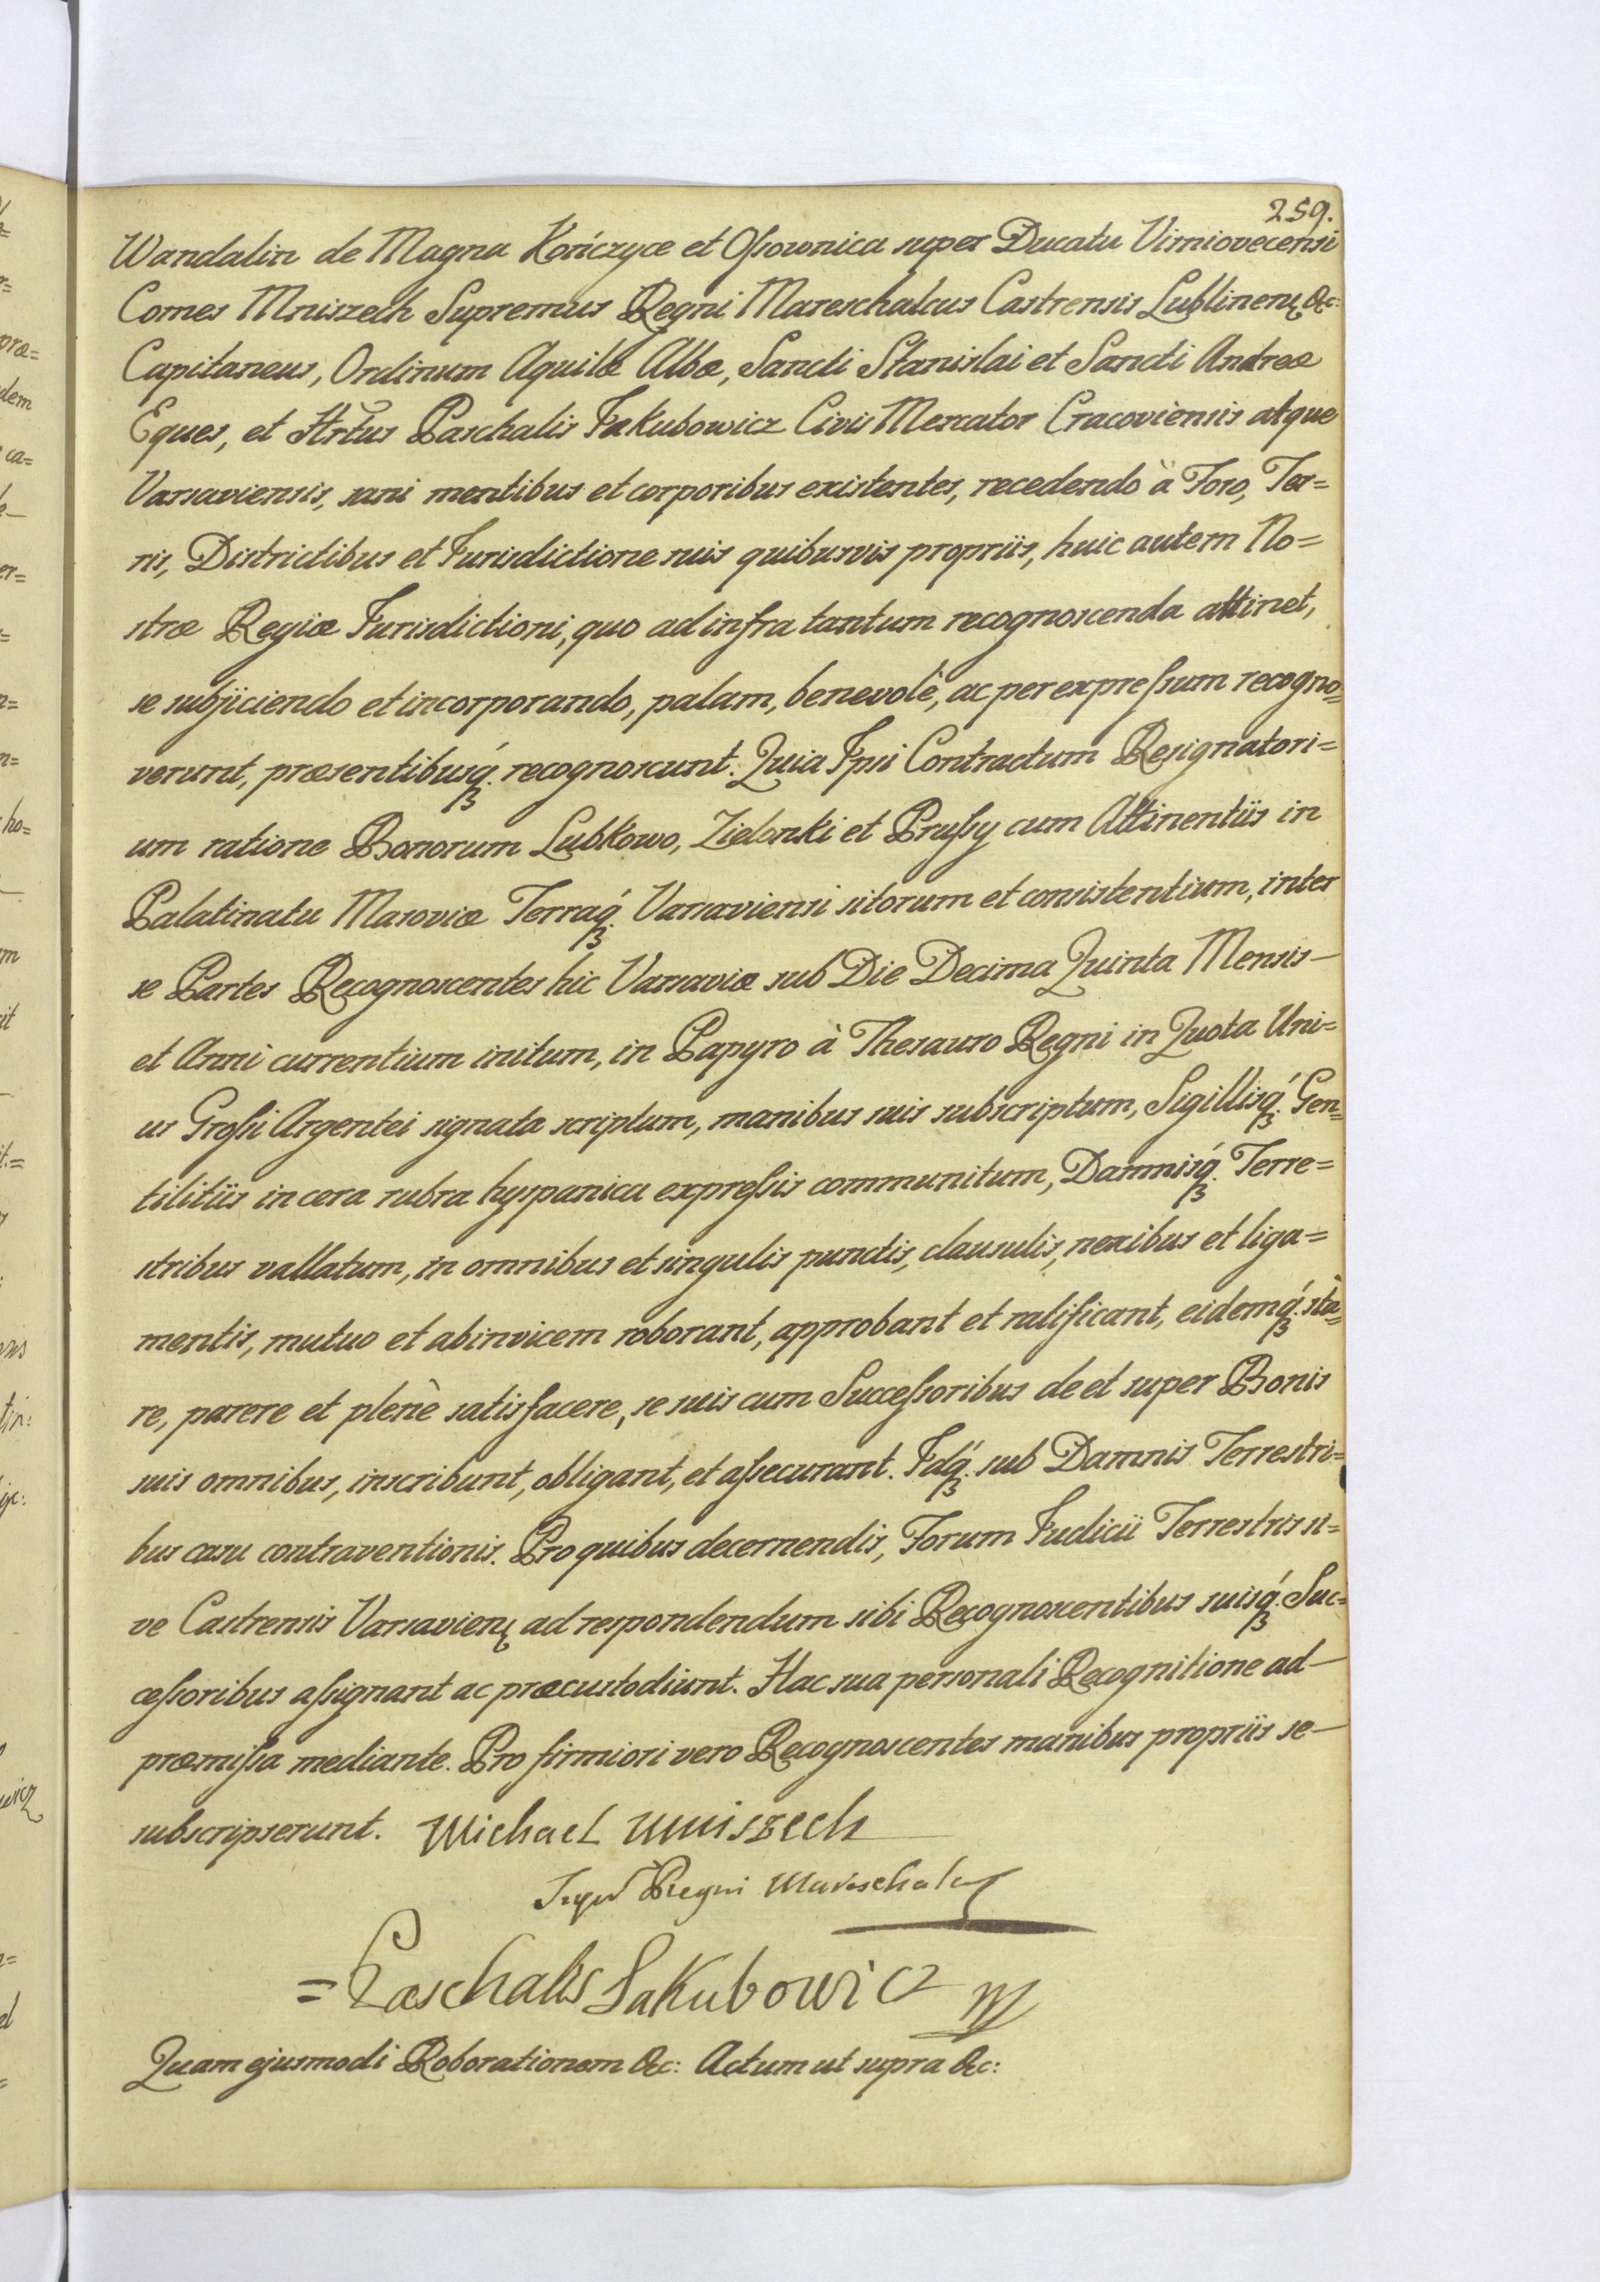 259.
Wandalin de Magna Kończyce et Ossownica super Ducatu Visniovecensi
Comes Mniszech Supremus Regni Mareschalcus Castrensis Lublinen, &c:
Capitaneus, Ordinum Aquilæ Albæ, Sancti Stanislai et Sancti Andreæ
Eques, et Paschalis Jakubowicz Civis Mercator Cracoviensis atque
Varsaviensis, sani mentibus et corporibus existentes, recedendo à Foro, Ter=
ris, Districtibus et Jurisdictione suis quibusvis propriis, huic autem No=
stræ Regiæ Jurisdictioni, quo ad infra tantum recognoscenda attinet,
se subjiciendo et incorporando, palam, benevolè, ac per expressum recogno=
verunt, præsentibusq́ recognoscunt. Quia Ipsi Contractum Resignatori=
um ratione Bonorum Lubkowo, Zielonki et Prussy cum Attinentiis in
Palatinatu Masoviæ Terraq́ Varsaviensi sitorum et consistentium, inter
se Partes Recognoscentes hic Varsaviæ sub Die Decima Quinta Mensis—
et Anni currentium initum, in Papyro à Thesauro Regni in Quota Uni=
us Grossi Argentei signata scriptum, manibus suis subscriptum, Sigillisq́ Gen=
tilitiis in cera rubra hyspanica expressis communitum, Damnisq́ Terre=
stribus vallatum, in omnibus et singulis punctis, clausulis, nexibus et liga=
mentis, mutuo et abinvicem roborant, approbant et ratificant, eidemq́ sta=
re, parere et plenè satisfacere, se suis cum Successoribus de et super Bonis
suis omnibus, inscribunt, obligant, et assecurant. Idq́ sub Damnis Terrestri=
bus casu contraventionis. Pro quibus decernendis, Forum Judicii Terrestris si=
ve Castrensis Varsavien, ad respondendum sibi Recognoscentibus suisq́ Suc=
cessoribus assignant ac præcustodiunt. Hac sua personali Recognitione ad—
præmissa mediante. Pro firmiori vero Recognoscentes manibus propriis se—
subscripserunt. Michael Mniszech
Supr Regni Mareschalcus
= Paschalis Jakubowicz
Quam ejusmodi Roborationem &c: Actum ut supra &c: